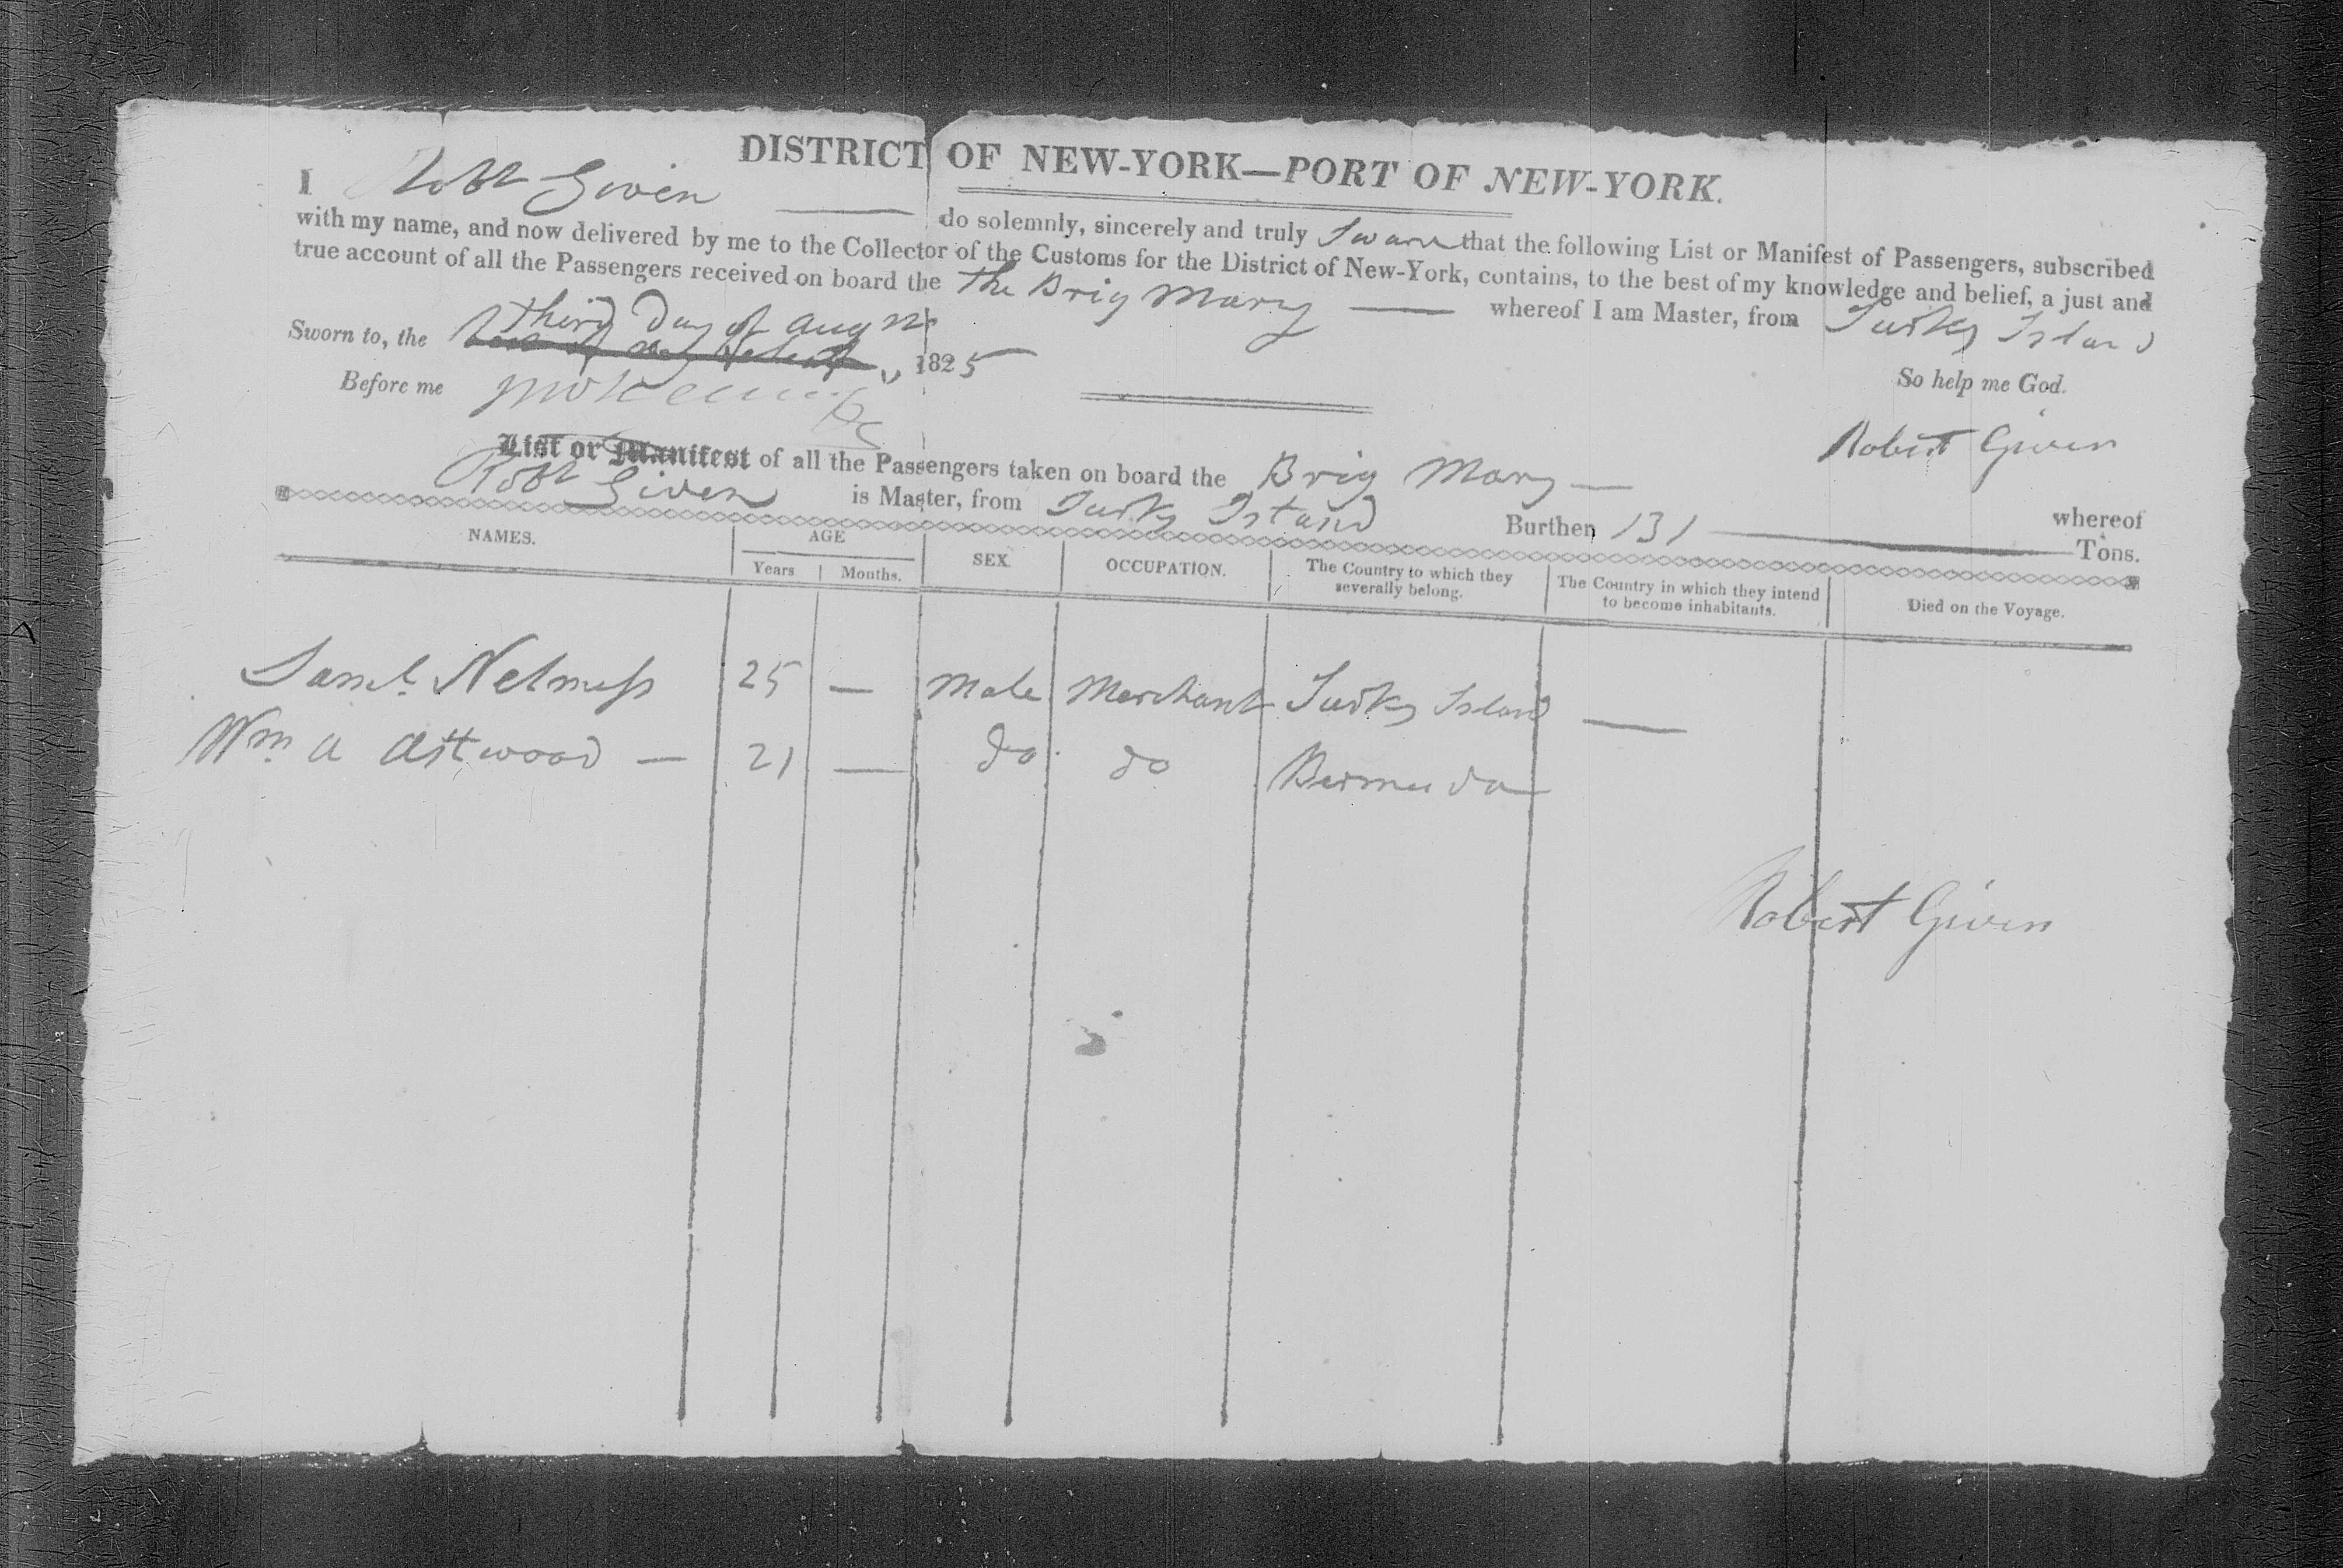 DISTRICT OF NEW-YORK—PORT OF NEW-YORK.
I Robt Given do solemnly, sincerely and truly Sware that the following List or Manifest of Passengers, subscribed
with my name, and now delivered by me to the Collector of the Customs for the District of New-York, contains, to the best of my knowledge and belief, a just and
true account of all the Passengers received on board the the Brig Mary — whereof I am Master, from Turks Island
third Day of Augst
Sworn to, the 1825
So help me God.
Before me
Robert Given
List or Manifest of all the Passengers taken on board the Brig Mary — whereof
Robt Given is Master, from Turks Island Burthen 131 — Tons.
NAMES. AGE SEX. OCCUPATION. The Country to which they severally belong. The Country in which they intend to become inhabitants. Died on the Voyage.
Years Months.
Saml. Nelmess 25 — Male Merchant Turks Island —
Wm. A Astwood — 21 — do do Bermuda
Robert Given